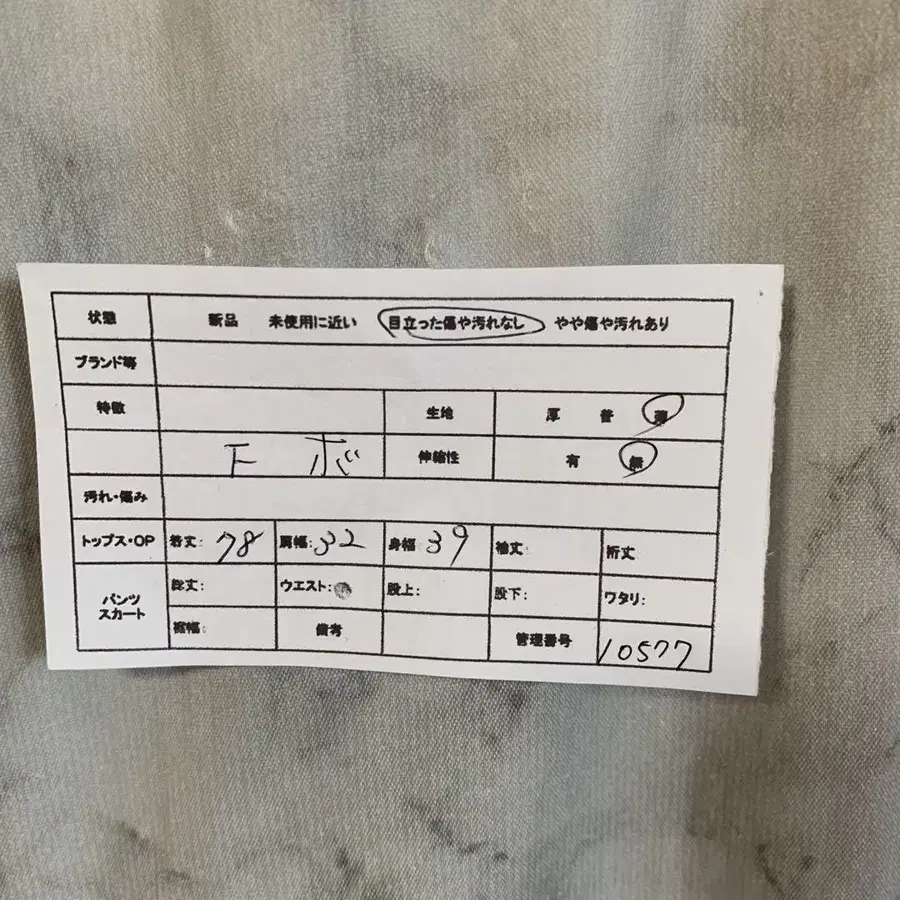 状態 新品 未使用に近い 目立った傷や汚れなし やや傷や汚れあり
ブランド等
特徴 生地 厚 普 薄
F ポ 伸縮性 有 無
汚れ・傷み
トップス・OP 着丈: 78 肩幅: 32 身幅 39 袖丈 裄丈
パンツ スカート 総丈: ウエスト: 股上: 股下: ワタリ:
裾幅: 備考 管理番号 10577